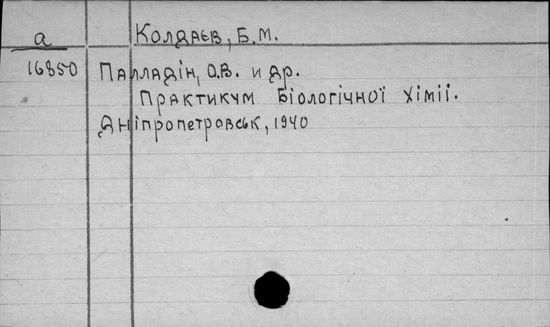 а Колдаєв, Б.М.
16850 Палладін, О.В. и др.
Практикум біологічної хімії.
Дніпропетровськ, 1940